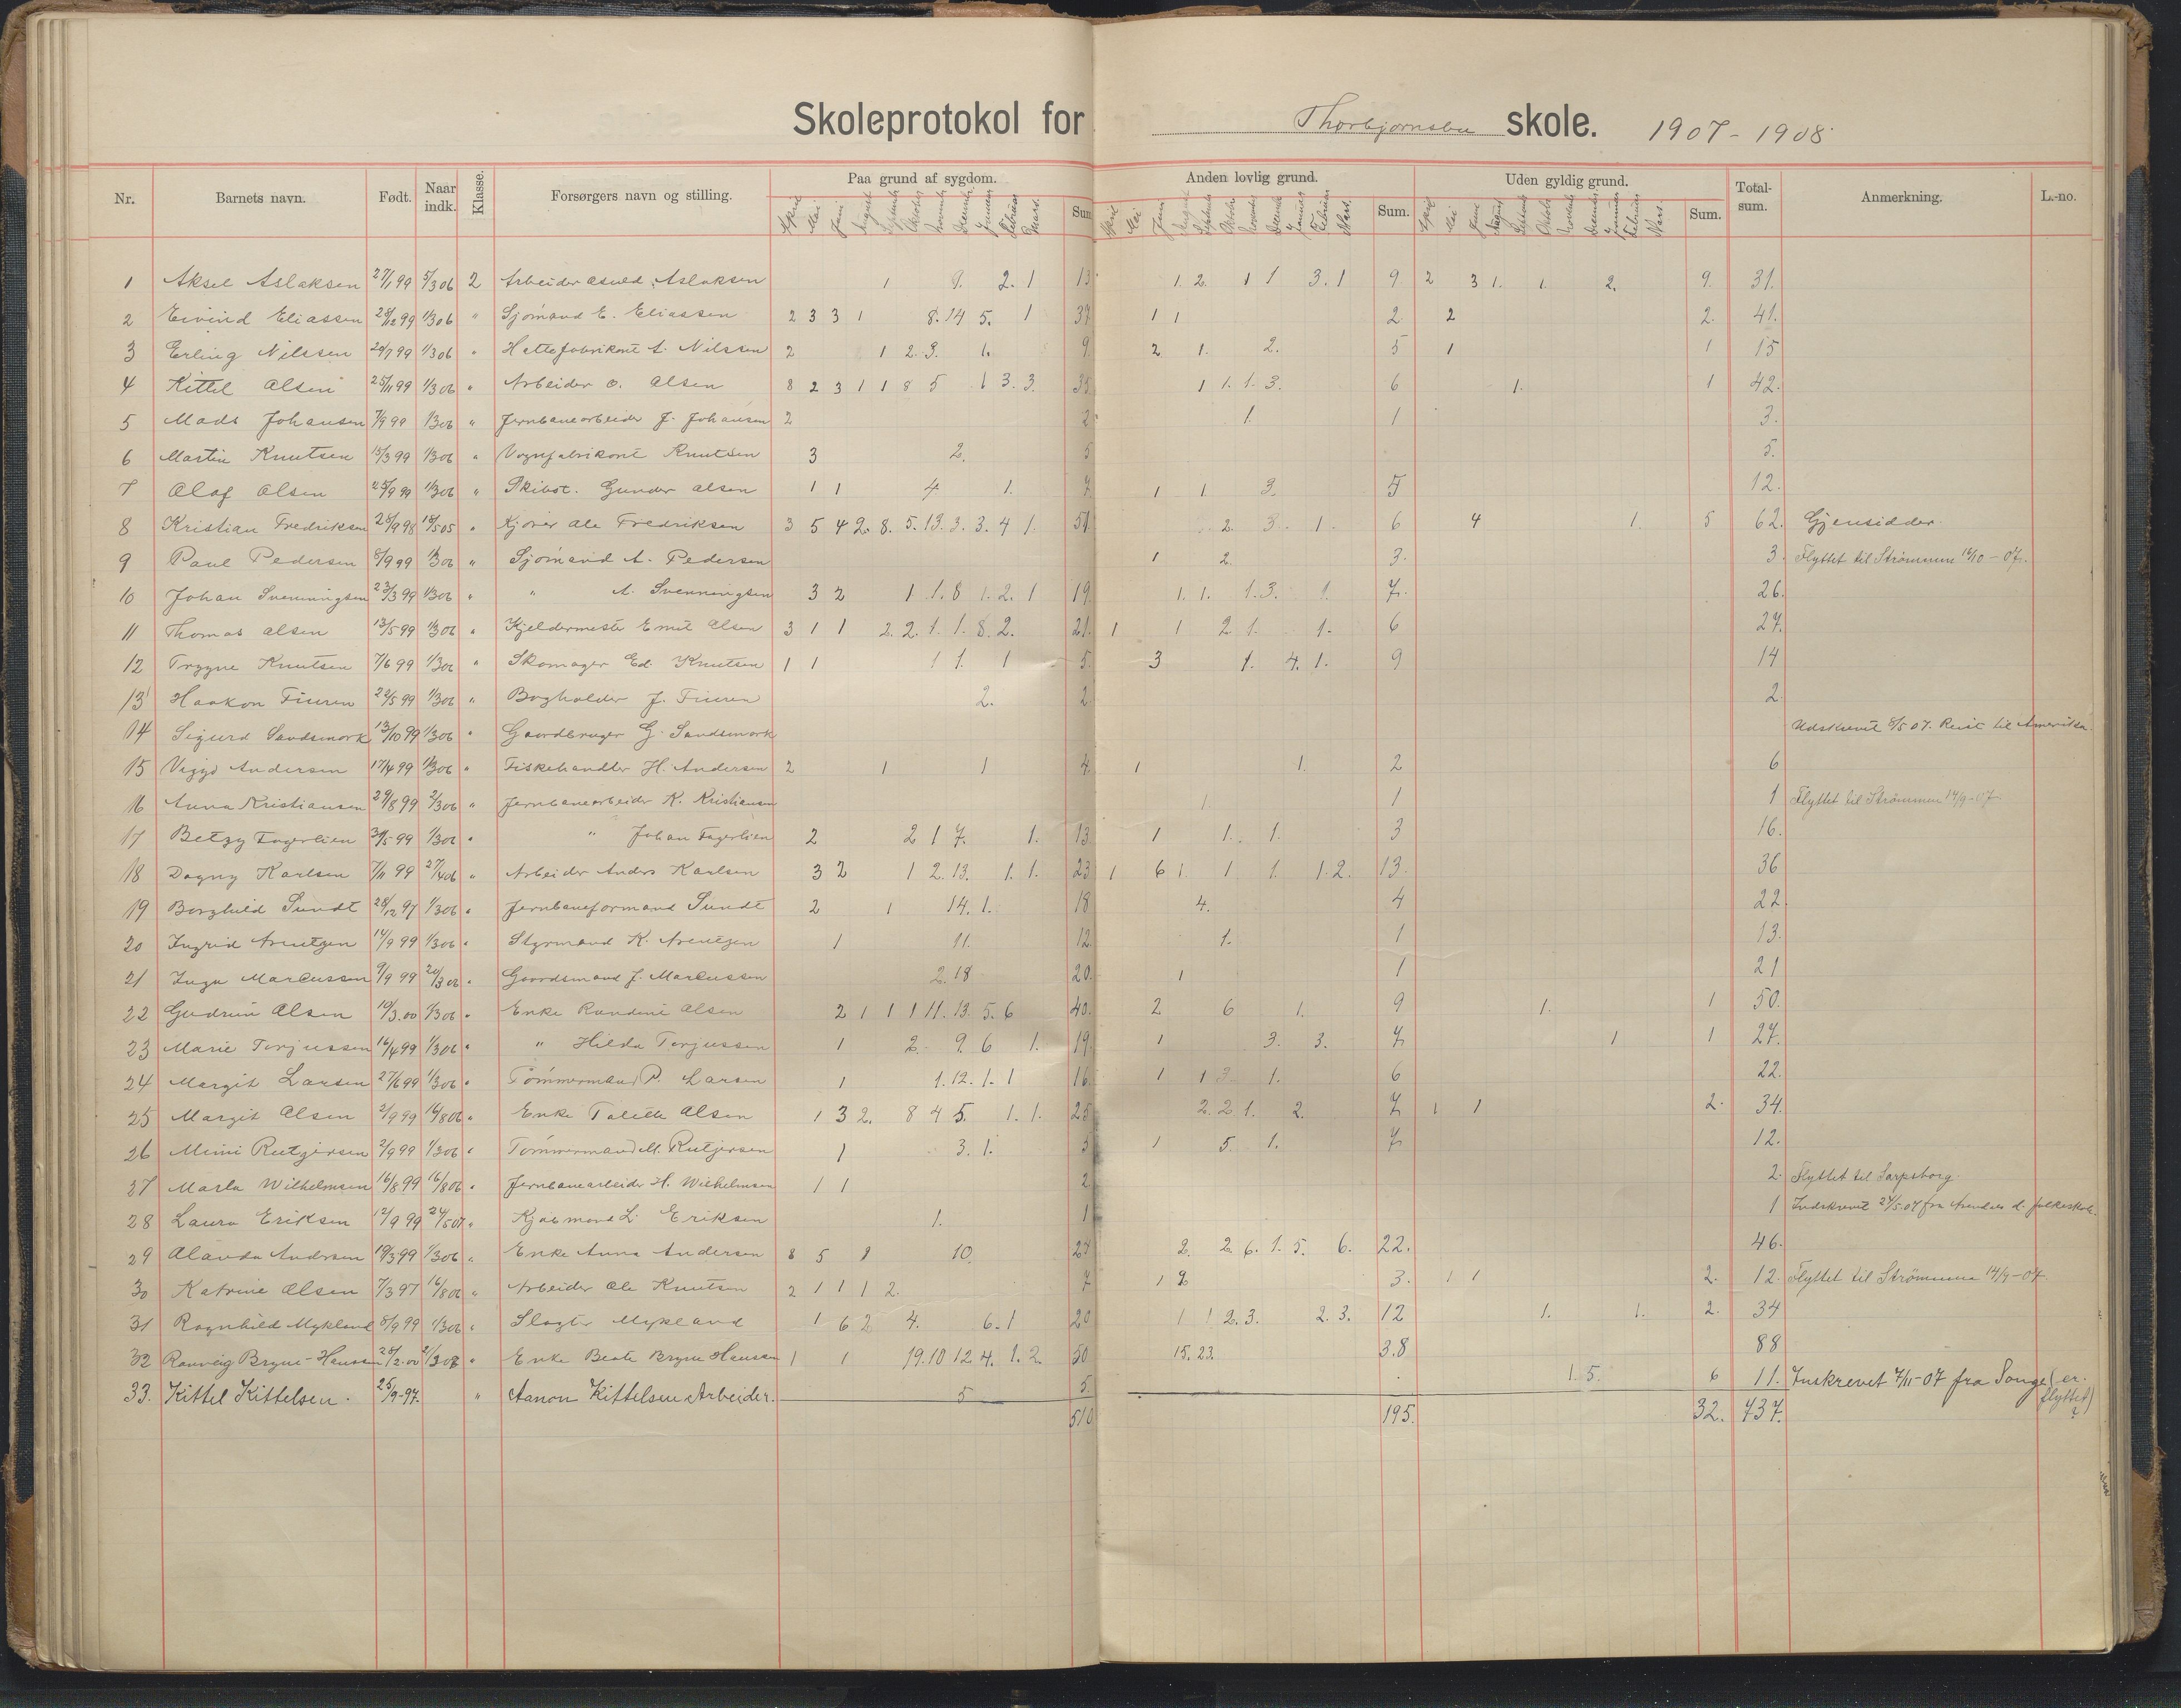 Skoleprotokol for Thorbjørnsbu skole. 1907-1908
Nr. Barnets navn. Født. Naar indk. Klasse. Forsørgers navn og stilling. Paa grund af sygdom. Sum Anden lovlig grund. Sum. Uden gyldig grund. Sum. Total-sum. Anmerkning. L.-no.
1 Aksel Aslaksen 27/1 99 5/3 06 2 Arbeider Aslaksen 1 9. 2. 1 13 1. 2. 1 1 3. 1 9 2 3 1. 1. 2. 9. 31.
2 Eivind Eliassen 28/12 99 1/3 06 " Sjømand E. Eliassen 2 3 3 1 8. 14 5. 1 37 1 1 2 2 2. 41.
3 Erling Nilssen 20/7 99 1/3 06 " Hattefabrikant A. Nilssen 2 1 2. 3. 1. 9. 2 1. 2. 5 1 1 15
4 Kittel Olsen 25/11 99 1/3 06 " Arbeider O. Olsen 8 2 3 1 1 8 5 1 3. 3. 35 1 1. 1. 3. 6 1. 1 42.
5 Mads Johansen 7/9 99 1/3 06 " Jernbanearbeider J. Johansen 2 2 1. 1 3.
6 Martin Knutsen 15/3 99 1/3 06 " Vognfabrikant Knutsen 3 2. 5 5.
7 Olaf Olsen 25/9 99 1/3 06 " Skibst. Gunder Olsen 1 1 4 1. 7 1 1. 3. 5 12.
8 Kristian Fredriksen 28/9 98 18/5 05 " Kjører Ole Fredriksen 3 5 4 2. 8. 5. 13. 3. 3. 4 1. 51 2. 3. 1. 6 4 1. 5 62. Gjensidder
9 Paul Pedersen 8/9 99 1/3 06 " Sjømand A. Pedersen 1 2. 3. 3. Flyttet til Strømmen 16/10-07.
10 Johan Svenningsen 23/3 99 1/3 06 " " A. Svenningsen 3 2 1 1. 8 1. 2. 1 19 1. 1. 1. 3. 1. 7. 26.
11 Thomas Olsen 13/5 99 1/3 06 " Kjeldermester Emil Olsen 3 1 1 2. 2. 1. 1. 8. 2. 21. 1 1 2. 1. 1. 6 27.
12 Trygve Knutsen 7/6 99 1/3 06 " Skomager Ed. Knutsen 1 1 1 1. 1 5. 3 1. 4. 1. 9 14
13 Haakon Fiuren 22/5 99 1/3 06 " Bogholder J. Fiuren 2. 2 2.
14 Sigurd Sandsmork 13/10 99 1/3 06 " Gaardbruger G. Sandsmork Udskrevet 8/5 07. Reist til Amerika.
15 Viggo Andersen 17/4 99 1/3 06 " Fiskehandler H. Andersen 2 1 1 4. 1 1. 2 6
16 Anna Kristiansen 29/8 99 2/3 06 " Jernbanearbeider K. Kristiansen 1. 1 1 Flyttet til Strømmen 14/9-07
17 Betzy Fagerlien 31/5 99 1/3 06 " " Johan Fagerlien 2 2 1 7. 1. 13 1 1. 1. 3 16.
18 Dagny Karlsen 7/11 99 27/4 06 " Arbeider Anders Karlsen 3 2 1 2. 13. 1. 1. 23 1 6 1. 1 1. 1. 2. 13. 36
19 Borghild Sundt 28/12 97 1/3 06 " Jernbaneformand Sundt 2 1 14. 1. 18 4. 4 22.
20 Ingrid Arentzen 14/9 99 1/3 06 " Styrmand K. Arentzen 1 11. 12 1. 1 13.
21 Inga Marcussen 9/9 99 20/3 06 " Gaardsmand J. Marcussen 2. 18 20. 1 1 21
22 Gudrun Olsen 10/3 00 1/3 06 " Enke Randine Olsen 2 1 1 1 11. 13. 5. 6 40. 2 6 1. 9 1. 1 50.
23 Marie Torjussen 16/4 99 1/3 06 " " Hilda Torjussen 1 2. 9. 6 1. 19 1 3. 3. 7. 1 1 27.
24 Margit Larsen 27/6 99 1/3 06 " Tømmermand P. Larsen 1 1. 12. 1. 1 16 1 1 3 1. 6 22.
25 Margit Olsen 2/9 99 16/8 06 " Enke Olsen 1 3 2. 8 4 5. 1. 1. 25 2. 2 1. 2. 7 1 1 2. 34.
26 Mimi Rutgersen 2/9 99 1/3 06 " Tømmermand M. Rutgersen 1 3. 1. 5 1 5. 1. 7. 12.
27 Marla Wilhelmsen 16/8 99 16/8 06 " Jernbanearbeider H. Wilhelmsen 1 1 2 2. Flyttet til Sarpsborg
28 Laura Eriksen 12/9 99 24/5 07 " Kjøbmand L. Eriksen 1. 1 1 Indskrevet 24/5.07 fra Arendals d. folkeskole.
29 Olanda Andersen 19/3 99 1/3 06 " Enke Anna Andersen 8 5 1 10. 24 2. 2 6. 1. 5. 6. 22. 46.
30 Katrine Olsen 7/3 97 16/8 06 " Arbeider Ole Knutsen 2 1 1 1 2. 7 1 2. 3. 1 1 2. 12. Flyttet til Strømmen 14/9-07
31 Ragnhild Mykland 8/9 99 1/3 06 " Slagter Mykland 1 6 2 4. 6. 1 20 1 1 2. 3. 2. 3. 12 1. 1. 2. 34
32 Ranveig Bryne-Hansen 28/2 00 2/3 07 " Enke Beate Bryne Hansen 1 1 19. 10 12. 4. 1. 2. 50 15. 23. 3.8 88
33. Kittel Kittelsen. 25/9-97. " Aanon Kittelsen Arbeider. 5 5. 1. 5. 6 11. Inskrevet 7/11-07 fra Songe (er flyttet)
510 195. 32. 737.